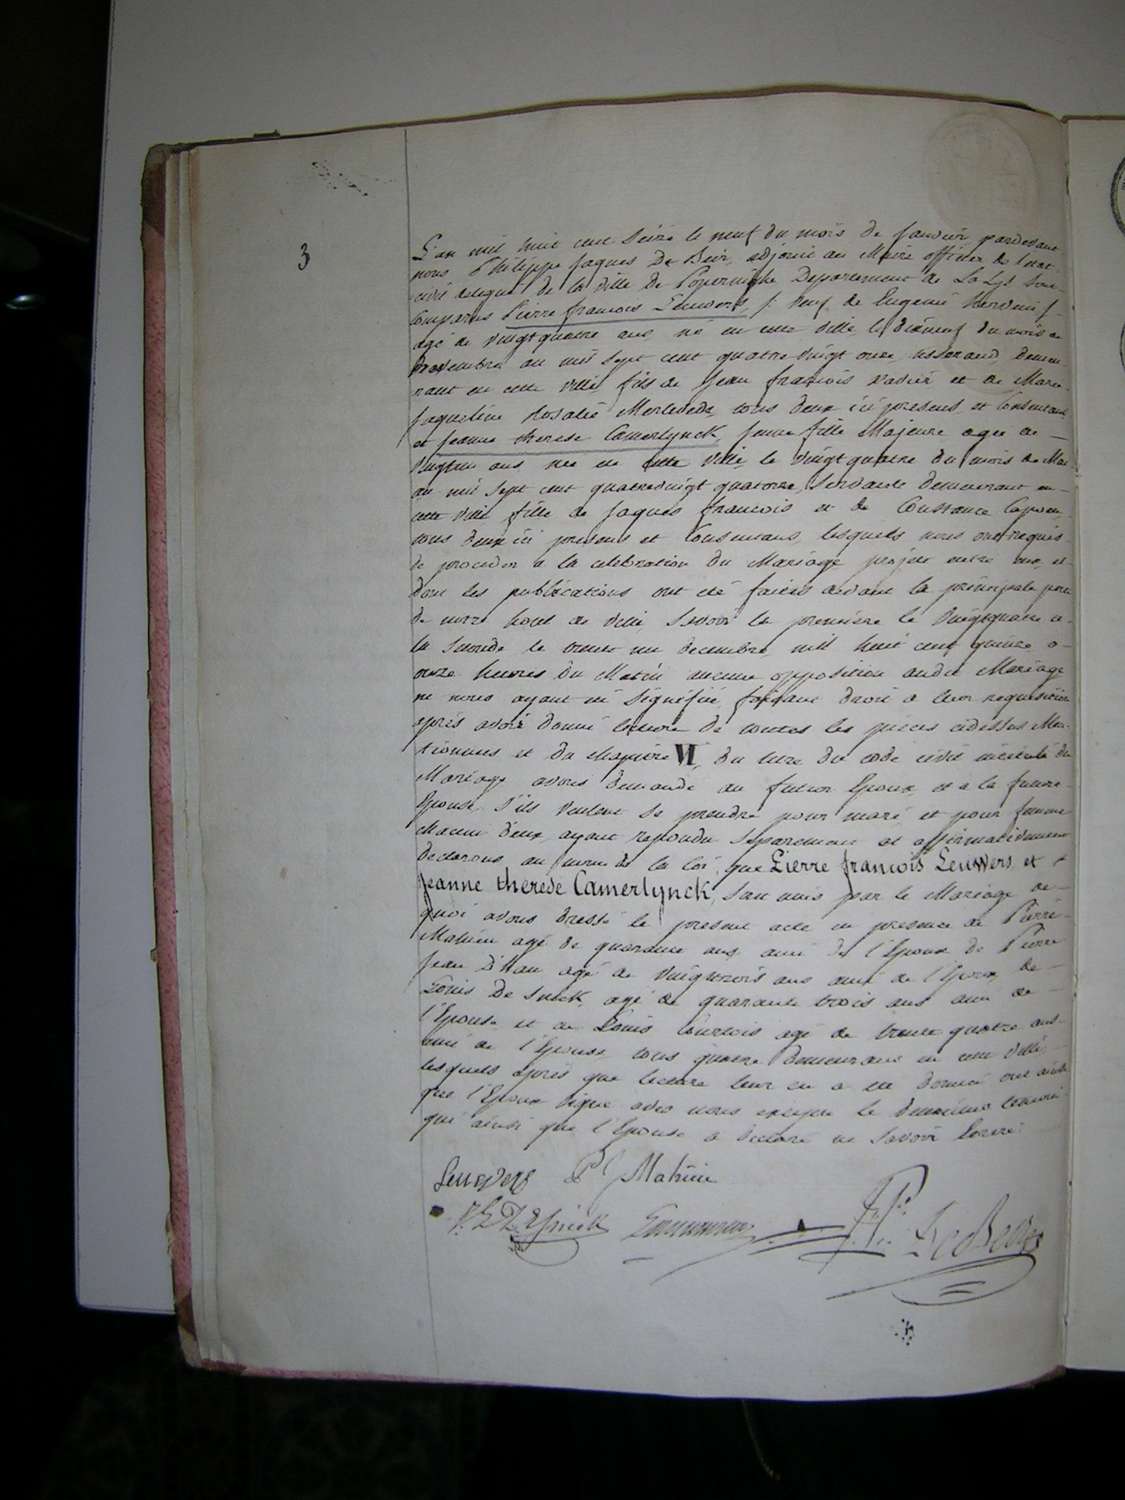 3
L'an mil huit cent Seize le neuf du mois de Janvier pardevant
nous Philippe Jaques De Beir, adjoint au Maire officier de l'etat
civil delegué de la ville de Poperinghe Departement de La Lys Sont
Comparus Pierre francois Leuwers j: veuf de Eugenie
agé de vingt quatre ans, né en cette ville le dixneuf du mois de
Novembre an mil sept cent quatre vingt onze, tisserand, demeu-
rant en cette ville fils de Jean francois Xavier et de Marie
Jaqueline Rosalie Merlevede, tous deux ici presens et Consentans
et Jeanne therese Camerlynck, jeune fille Majeure agée de
Vingt un ans née en cette ville le vingt quatre du mois de Mai
an mil Sept cent quatrevingt quatorze, Servante demeurant en
cette ville fille de Jaques francois et de Constance
tous deux ici presens et Consentans, lesquels nous ont requis
de proceder a la celebration du Mariage projeté entre eux, et
dont les publications ont été faites devant la principale porte
de notre hotel de ville Savoir la premiere le vingtquatre et
la Seconde le trente un decembre mil huit cent quinze, a
onze heures du Matin aucune opposition audit Mariage
ne nous ayant été Signifiée, faisant droit a leur requisition
après avoir donné lecture de toutes les pièces cidessus Men-
tionnées et du chapitre VI, du titre du code civil intitulé du
Mariage avons demandé au futur Epoux, et a la future
Epouse s'ils veulent se prendre pour mari et pour femme
chacun d'eux ayant repondu Separement et affirmativement
declarons au nom de la loi que Pierre francois Leuwers et
Jeanne therese Camerlynck, Sont unis par le Mariage de
quoi avons dressé le present acte en presence de Pierre
Mahieu agé de quarante ans ami de l'Epoux de Pierre
Jean agé de vingt trois ans ami de l'Epoux, de
Louis De agé de quarante trois ans ami de
l'Epouse et de Louis Courtois agé de trente quatre ans
ami de l'Epouse tous quatre demeurans en cette ville
lesquels après que lecture leur en a été donnée ont ainsi
que l'Epoux Signé avec nous excepté le deuxième temoin
qui ainsi que l'Epouse a declaré ne Savoir Ecrire
Leuwers P J Mahieu
De Beir